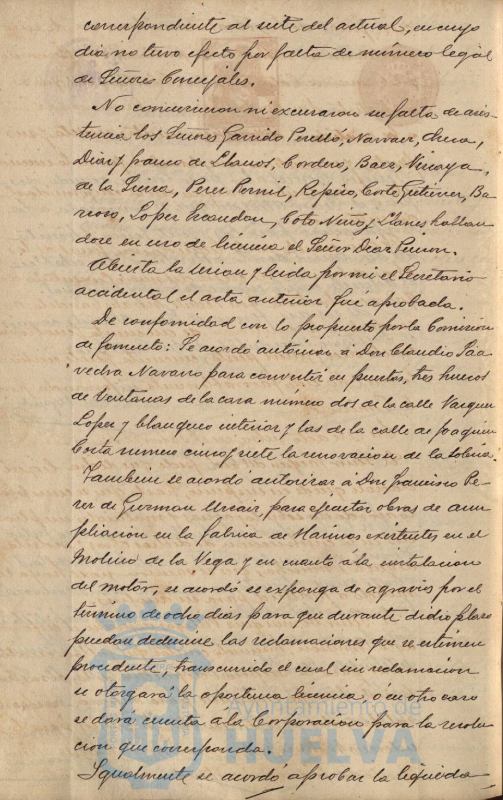 correspondiente al siete del actual, en cuyo
dia no tuvo efecto por falta de número legal
de Señores Concejales.
No concurrieron ni excusaron su falta de asis-
tencia los Señores Garrido Perelló, Narvaez, Checa,
Diaz y franco de Llanos, Cordero, Baez, Vizcaya,
de la Sierra, Perez Pernil, Repiso, Corte Gutierrez, Ba
rroso, Lopez Escandon, Coto Niño, y Llanes hallan
dose en uso de licencia el Señor Diaz
Abierta la sesion y leida por mi el Secretario
accidental el acta anterior fué aprobada.
De conformidad con lo propuesto por la Comision
de fomento: Se acordó autorizar á Don Claudio Saa
vedra Navarro para convertir en puertas, tres huecos
de ventanas de la casa número dos de la calle Vazquez
Lopez y blanqueo interior y las de la calle de Joaquin
Costa número cinco y siete la renovacion de la solería.
Tambien se acordó autorizar á Don francisco Pe
rez de Guzman Urzaiz, para ejecutar obras de am
pliacion en la fabrica de Harinas existentes en el
Molino de la Vega y en cuanto á la instalacion
del motor, se acordó se exponga de agravios por el
término de ocho dias para que durante dicho plazo
puedan deducirse las reclamaciones que se estimen
procidente, transcurrido el cual sin reclamacion
se otorgará la oportuna licencia, ó en otro caso
se dará cuenta a la Corporacion para la resolu
cion que corresponda.
Igualmente se acordó aprobar la liquida
Ayuntamiento de
HUELVA